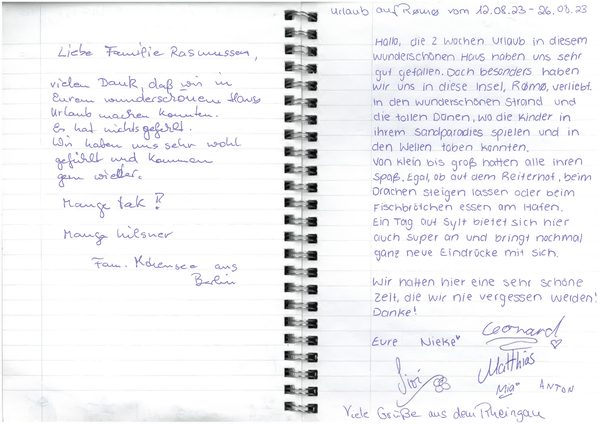 Liebe Familie Rasmussen,
vielen Dank, daß wir in
Eurem wunderschönem Haus
Urlaub machen konnten.
Es hat nichts gefehlt.
Wir haben uns sehr wohl
gefühlt und kommen
gern wieder.
Mange tak !!
Mange hilsner
Fam. aus
Berlin
Urlaub auf Rømø vom 12.08.23 - 26.08.23
Hallo, die 2 Wochen Urlaub in diesem
wunderschönen Haus haben uns sehr
gut gefallen. Doch besonders haben
wir uns in diese Insel, Rømø, verliebt.
In den wunderschönen Strand und
die tollen Dünen, wo die Kinder in
ihrem Sandparadies spielen und in
den Wellen toben konnten.
Von klein bis groß hatten alle Ihren
Spaß. Egal, ob auf dem Reiterhof, beim
Drachen steigen lassen oder beim
Fischbrötchen essen am Hafen.
Ein Tag auf Sylt bietet sich hier
auch super an und bringt nochmal
ganz neue Eindrücke mit sich.
Wir hatten hier eine sehr schöne
Zeit, die wir nie vergessen werden!
Danke!
Eure Nieke Leonard
Matthias
Mia ANTON
Viele Grüße aus dem Rheingau